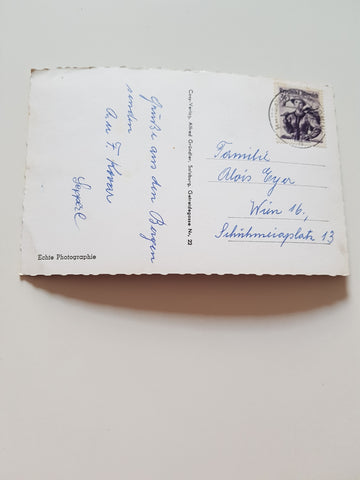 Grüße aus den Bergen
senden
Echte Photographie
Cosy-Verlag, Alfred Gründler, Salzburg, Getreidegasse Nr. 22
Familie
Alois Eyer
Wien 16.,
Schuhmeierplatz 13